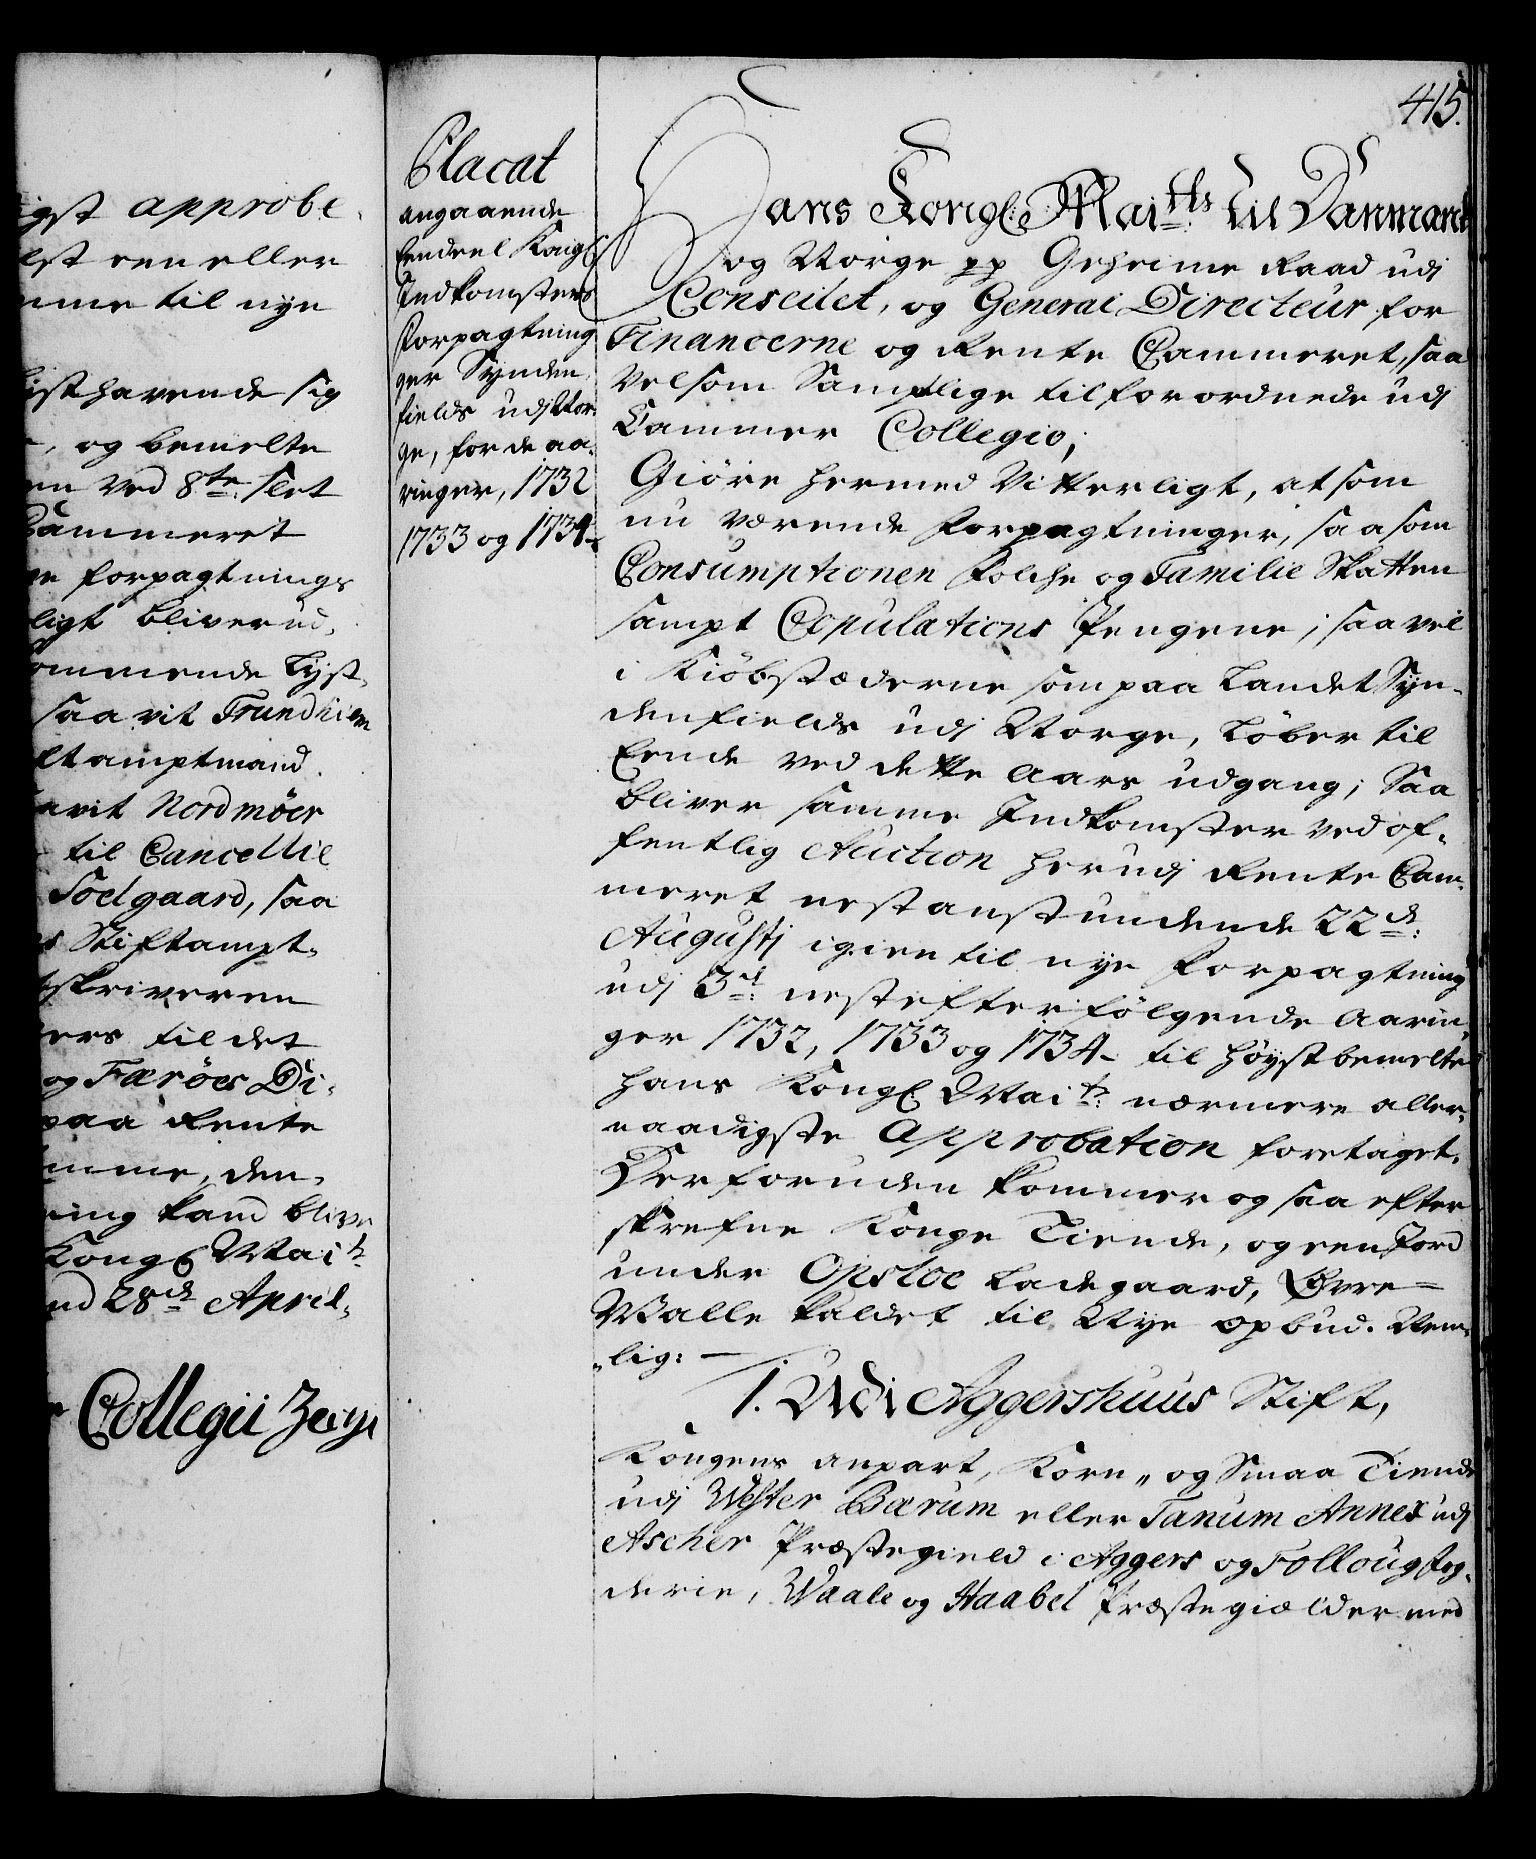 415.
igst approbe,
lst een eller
mme til nye
isthavende sig
, og bemelte
en ved 8te Slet
Cammeret
forpagtnings
ligt bliver ud,
ommende Lyst,
saavit Trundhiem
ltamptmand
avit Nordmöer
til Cancellie
Soelgaard, saa
Stiftampt,
skriveren
ers til det
og Færöes Di,
paa Rente
mme, den,
ning kand blive
Kongl Mait
nd 28de April,
Collegii
Placat
angaaende
Eendeel Kongl
Indkomsters
Forpagtning
ger Synden,
fields udj Nor,
ge, for de aa,
ringer, 1732
1733 og 1734
Hans Kongl: Maitts til Danmark
og Norge pp Geheime Raad udj
Conseilet, og General Directeur for
Financerne og Rente Cammeret, saa
Velsom Samptlige tilforordnede udj
Cammer Collegio,
Giöre hermed Vitterligt, at som
nu værende Forpagtninger, saasom
Consumptionen Folche og Familie Skatten
sampt Copulations Pengene, saavel
i Kiöbstæderne som paa Landet Syn,
denfields udj Norge, Löber til
Eende ved dette Aars udgang; Saa
bliver samme Indkomster ved of,
fentlig Auction herudj Rente Cam,
meret nestanstundende 22de:
Augustj igien til nye Forpagtning
udj 3de: nestefterfölgende Aarin,
ger 1732, 1733 og 1734 til höystbemelte
Hans Kongl Mait: nærmere aller,
naadigste Approbation foretaget.
Derforuden kommer og saa efter
skrefne Konge Tiende, og een Jord
under Opsloe Ladegaard, Øvre=
Malle kaldet til Nye opbud. Nem,
„lig: —
1. Udi Aggershuus Stift,
Kongens anpart, Korn„ og Smaa Tiende
udj Wester Bærum eller Tanum Annex udj
Ascher Præstegield i Aggers og Folloug Fog,
derie, Waale og Haabel Præstegiælder med